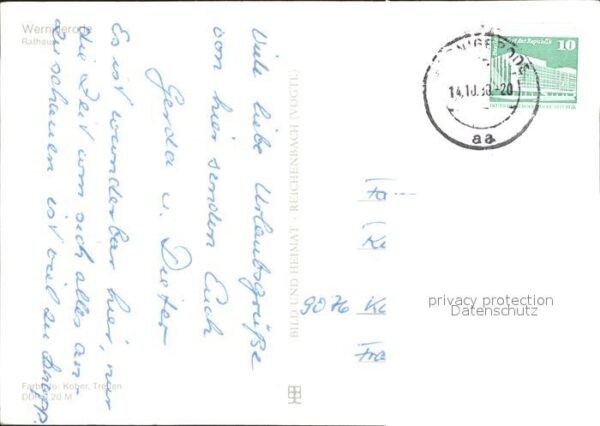 Wernigerode
Rathaus
Viele liebe Urlaubsgrüße
von hier senden Euch
Gerda u. Dieter
Es ist wunderbar hier, nur
die Zeit um sich alles an-
zuschauen ist viel zu knapp.
BILD UND HEIMAT · REICHENBACH (VOGTL)
Farbfoto: Kober, Treuen
DDR 0,20 M
WERNIGERODE
14.10.80-20
aa
Palast der Republik
10
Fa
9076
privacy protection
Datenschutz